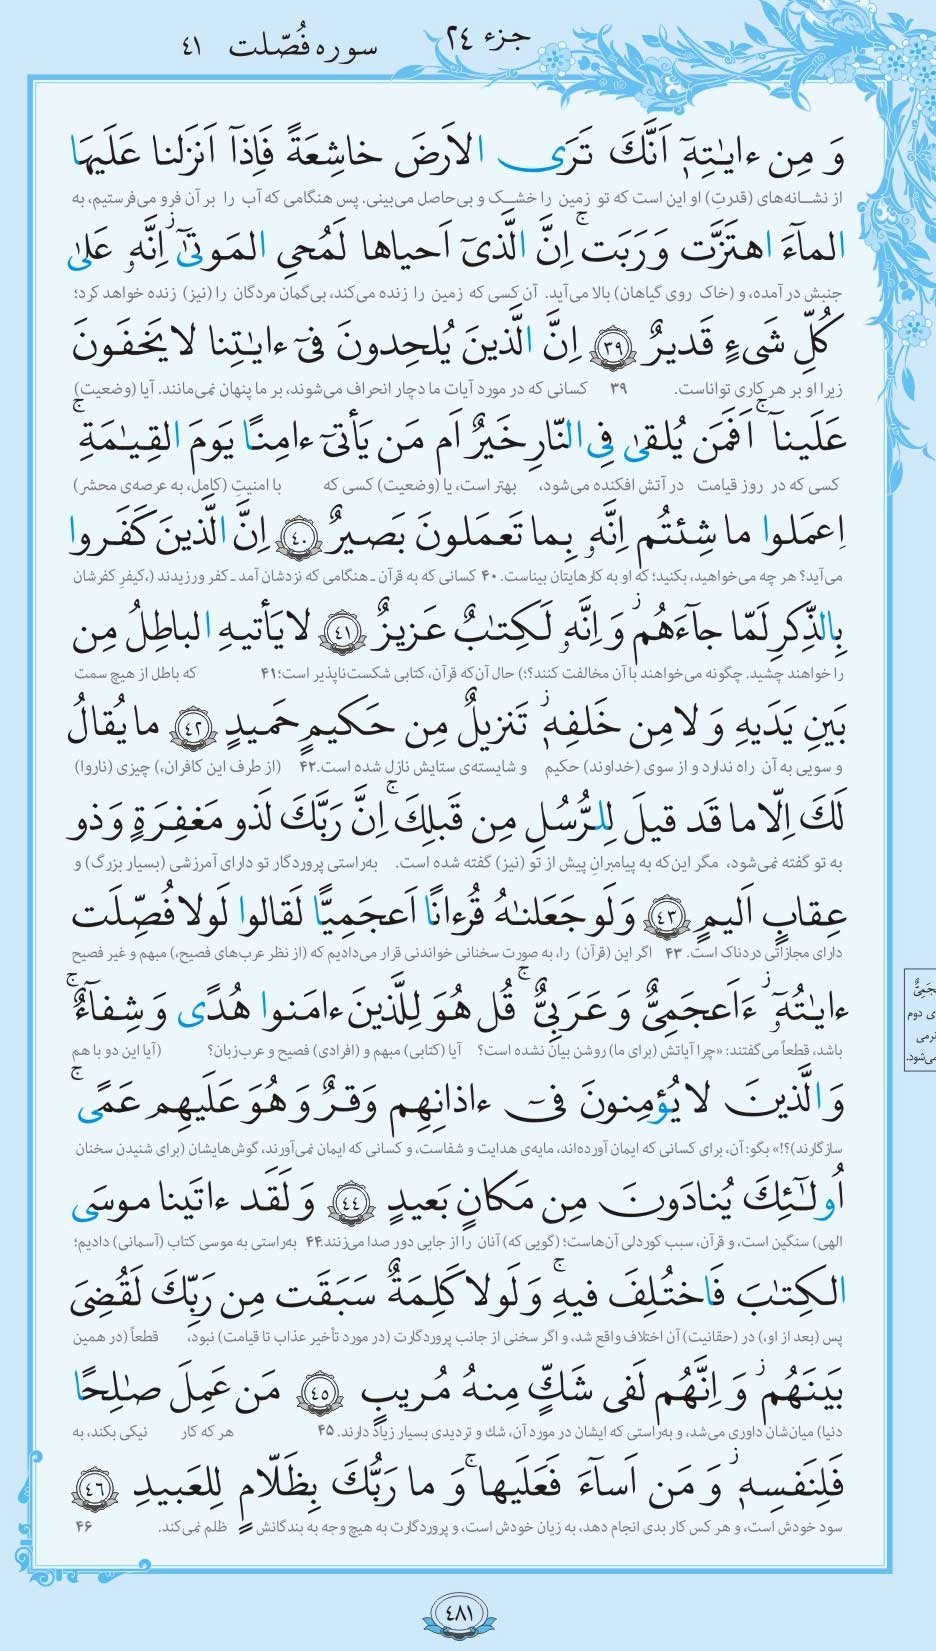 جزء ۲۴ سوره فُصّلت ۴۱
وَ مِن ءایـٰتِهٖٓ اَنَّكَ تَرَی الاَرضَ خاشِعَةً فَاِذآ اَنزَلنا عَلَیهَا
از نشانه‌های (قدرتِ) او این است که تو زمین را خشک و بی‌حاصل می‌بینی. پس هنگامی که آب را بر آن فرو می‌فرستیم، به
المآءَ اهتَزَّت وَ رَبَت ۚ اِنَّ الَّذیٓ اَحیاها لَمُحیِ المَوتیٰٓ ۚ اِنَّهٗ عَلیٰ
جنبش در آمده، و (خاک روی گیاهان) بالا می‌آید. آن کسی که زمین را زنده می‌کند، بی‌گمان مردگان را (نیز) زنده خواهد کرد؛
كُلِّ شَیءٍ قَدیرٌ ﴿۳۹﴾ اِنَّ الَّذینَ یُلحِدونَ فیٓ ءایـٰتِنا لا یَخفَونَ
زیرا او بر هر کاری تواناست. ۳۹ کسانی که در مورد آیات ما دچار انحراف می‌شوند، بر ما پنهان نمی‌مانند. آیا (وضعیت)
عَلَینآ ۗ اَفَمَن یُلقیٰ فِی النّارِ خَیرٌ اَم مَن یَأتیٓ ءامِنًا یَومَ القِیـٰمَةِ ۚ
کسی که در روز قیامت در آتش افکنده می‌شود، بهتر است، یا (وضعیت) کسی که با امنیتِ (کامل، به عرصه‌ی محشر)
اِعمَلوا ما شِئتُم اِنَّهٗ بِما تَعمَلونَ بَصیرٌ ﴿۴۰﴾ اِنَّ الَّذینَ كَفَروا
می‌آید؟ هر چه می‌خواهید، بکنید؛ که او به کارهایتان بیناست. ۴۰ کسانی که به قرآن ـ هنگامی که نزدشان آمد ـ کفر ورزیدند (،کیفرِ کفرشان
بِالذِّكرِ لَمّا جآءَهُم ۖ وَ اِنَّهٗ لَكِتـٰبٌ عَزیزٌ ﴿۴۱﴾ لا یَأتیهِ الباطِلُ مِن
را خواهند چشید. چگونه می‌خواهند با آن مخالفت کنند؟!) حال آن‌که قرآن، کتابی شکست‌ناپذیر است؛ ۴۱ که باطل از هیچ سمت
بَینِ یَدَیهِ وَ لا مِن خَلفِهٖ ۖ تَنزیلٌ مِن حَكیمٍ حَمیدٍ ﴿۴۲﴾ ما یُقالُ
و سویی به آن راه ندارد و از سوی (خداوند) حکیم و شایسته‌ی ستایش نازل شده است. ۴۲ (از طرف این کافران،) چیزی (ناروا)
لَكَ اِلّا ما قَد قیلَ لِلرُّسُلِ مِن قَبلِكَ ۚ اِنَّ رَبَّكَ لَذو مَغفِرَةٍ وَ ذو
به تو گفته نمی‌شود، مگر این‌که به پیامبرانِ پیش از تو (نیز) گفته شده است. به‌راستی پروردگار تو دارای آمرزشی (بسیار بزرگ) و
عِقابٍ اَلیمٍ ﴿۴۳﴾ وَ لَو جَعَلنـٰهُ قُرءانًا اَعجَمِیًّا لَقالوا لَولا فُصِّلَت
دارای مجازاتی دردناک است. ۴۳ اگر این (قرآن) را، به صورت سخنانی خواندنی قرار می‌دادیم که (از نظر عرب‌های فصیح،) مبهم و غیر فصیح
ءایـٰتُهٗٓ ۖ ءَاَعجَمِیٌّ وَ عَرَبِیٌّ ۚ قُل هُوَ لِلَّذینَ ءامَنوا هُدًی وَ شِفآءٌ ۚ
باشد، قطعاً می‌گفتند: «چرا آیاتش (برای ما) روشن بیان نشده است؟ آیا (کتابی) مبهم و (افرادی) فصیح و عرب‌زبان؟ (آیا این دو با هم
وَ الَّذینَ لا یُؤمِنونَ فیٓ ءاذانِهِم وَقرٌ وَ هُوَ عَلَیهِم عَمًی ۚ
سازگارند)؟!» بگو: آن، برای کسانی که ایمان آورده‌اند، مایه‌ی هدایت و شفاست، و کسانی که ایمان نمی‌آورند، گوش‌هایشان (برای شنیدن سخنان
اُولـٰٓئِكَ یُنادَونَ مِن مَكانٍ بَعیدٍ ﴿۴۴﴾ وَ لَقَد ءاتَینا موسَی
الهی) سنگین است، و قرآن، سبب کوردلی آن‌هاست؛ (گویی که) آنان را از جایی دور صدا می‌زنند. ۴۴ به‌راستی به موسی کتاب (آسمانی) دادیم؛
الكِتـٰبَ فَاختُلِفَ فیهِ ۚ وَ لَولا كَلِمَةٌ سَبَقَت مِن رَبِّكَ لَقُضیَ
پس (بعد از او،) در (حقانیت) آن اختلاف واقع شد، و اگر سخنی از جانب پروردگارت (در مورد تأخیر عذاب تا قیامت) نبود، قطعاً (در همین
بَینَهُم ۚ وَ اِنَّهُم لَفی شَكٍّ مِنهُ مُریبٍ ﴿۴۵﴾ مَن عَمِلَ صـٰلِحًا
دنیا) میان‌شان داوری می‌شد، و به‌راستی که ایشان در مورد آن، شك و تردیدی بسیار زیاد دارند. ۴۵ هر که کار نیکی بکند، به
فَلِنَفسِهٖ ۖ وَ مَن اَسآءَ فَعَلَیها ۗ وَ ما رَبُّكَ بِظَلّامٍ لِلعَبیدِ ﴿۴۶﴾
سود خودش است، و هر کس کار بدی انجام دهد، به زیان خودش است، و پروردگارت به هیچ وجه به بندگانش ظلم نمی‌کند. ۴۶
۴۸۱